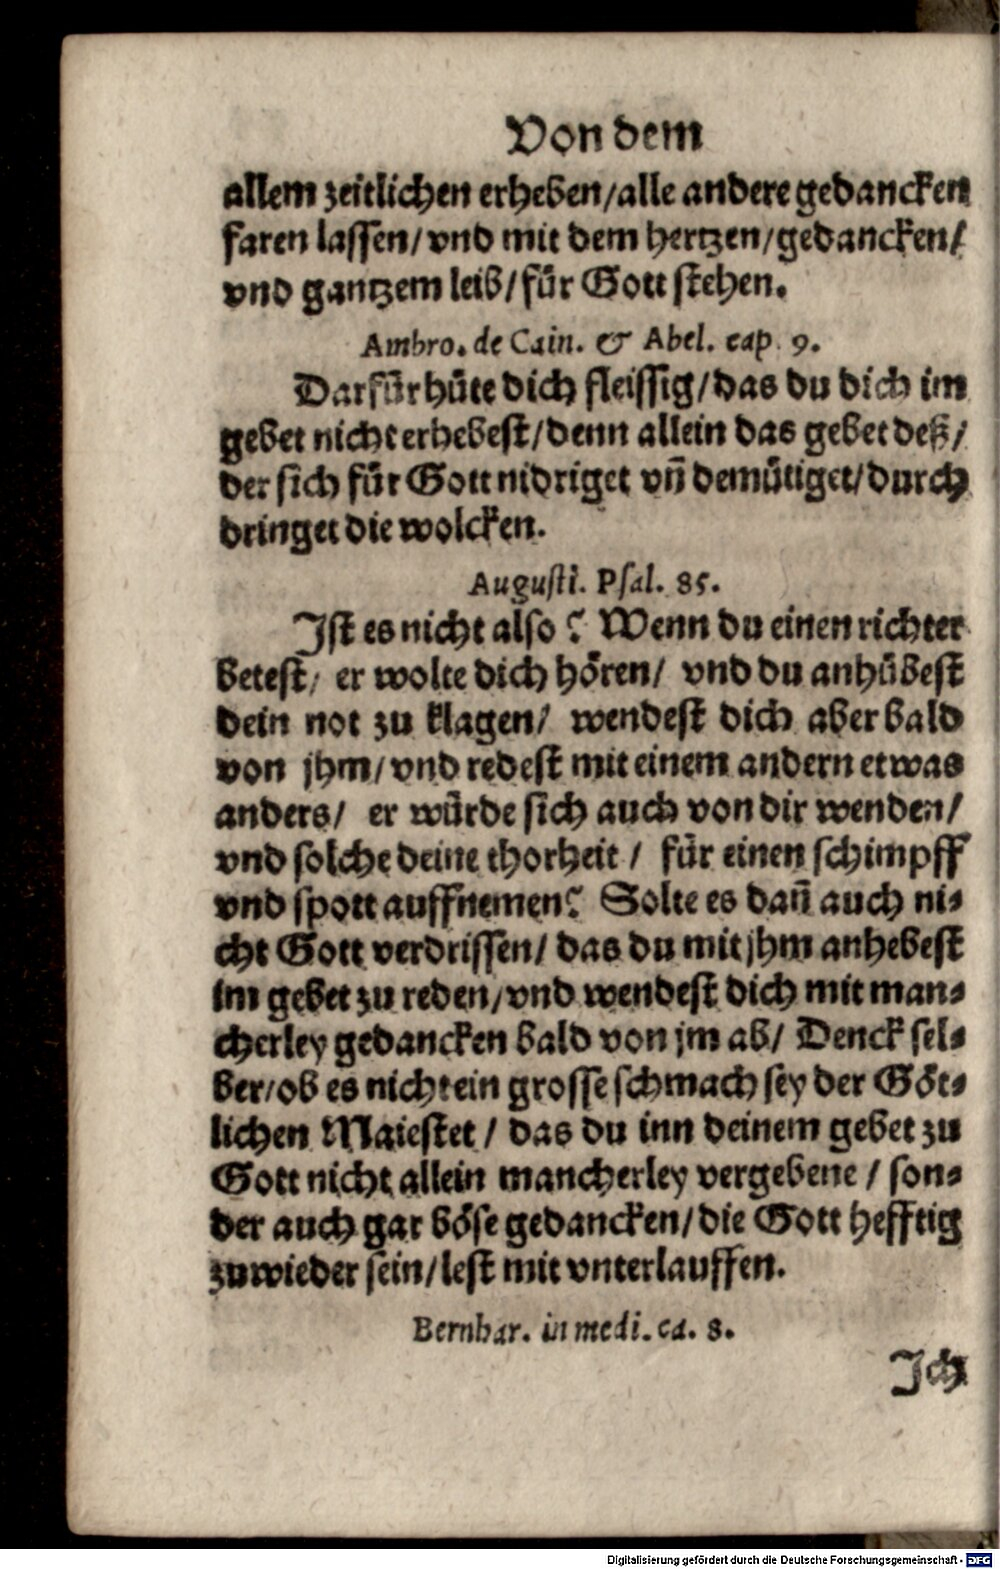 Von dem
allem zeitlichen erheben/alle andere gedancken
faren lassen/vnd mit dem hertzen/gedancken/
vnd gantzem leib/für Gott stehen.
Ambro. de Cain. & Abel. cap. 9.
Darfür hüte dich fleissig/das du dich im
gebet nicht erhebest/denn allein das gebet deß/
der sich für Gott nidriget vñ demütiget/durch
dringet die wolcken.
Augusti. Psal. 85.
Ist es nicht also? Wenn du einen richter
betest/ er wolte dich hören/ vnd du anhübest
dein not zu klagen/ wendest dich aber bald
von jhm/vnd redest mit einem andern etwas
anders/ er würde sich auch von dir wenden/
vnd solche deine thorheit/ für einen schimpff
vnd spott auffnemen? Solte es dañ auch ni-
cht Gott verdrissen/ das du mit jhm anhebest
im gebet zu reden/vnd wendest dich mit man-
cherley gedancken bald von jm ab/ Denck sel-
ber/ob es nicht ein grosse schmach sey der Göt-
lichen Maiestet/ das du inn deinem gebet zu
Gott nicht allein mancherley vergebene/ son-
der auch gar böse gedancken/die Gott hefftig
zuwieder sein/lest mit vnterlauffen.
Bernhar. in medi. ca. 8.
Ich
Digitalisierung gefördert durch die Deutsche Forschungsgemeinschaft - DFG